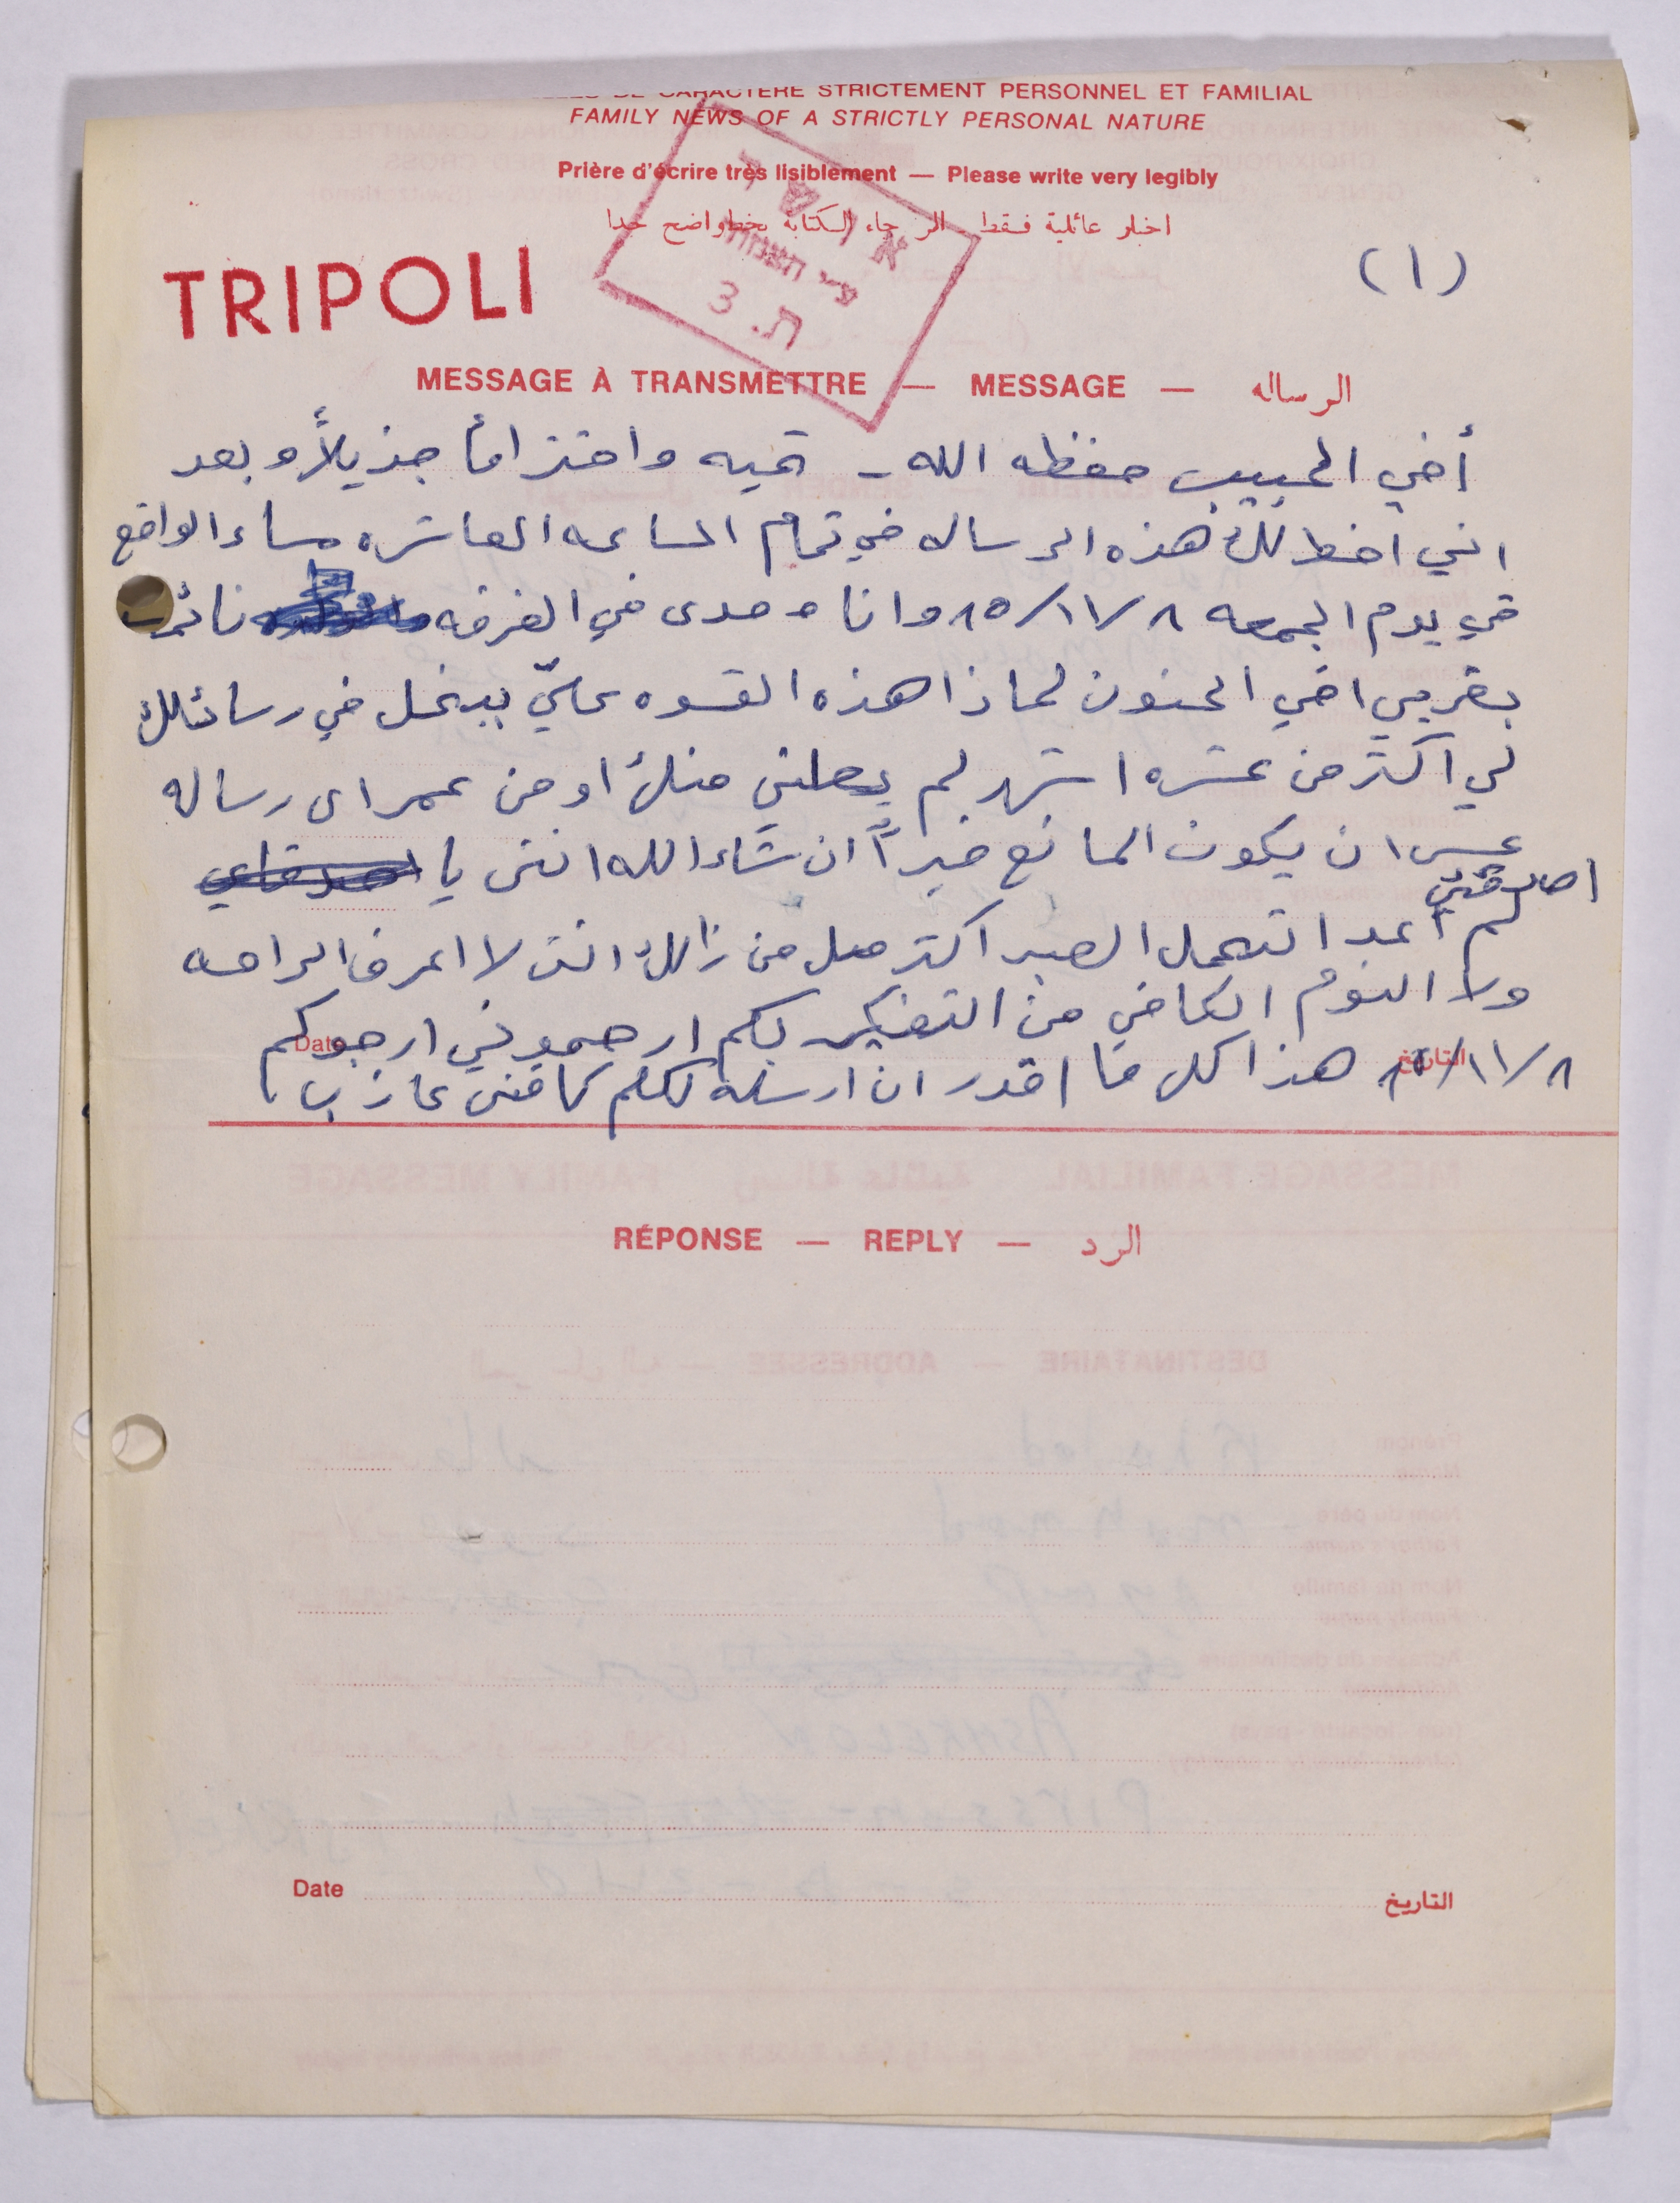 DE CARACTÈRE STRICTEMENT PERSONNEL ET FAMILIAL
FAMILY NEWS OF A STRICTLY PERSONAL NATURE
Prière d'écrire très lisiblement — Please write very legibly
اخبار عائلية فقط الرجاء الكتابة بخط واضح جدا
ת. 3
TRIPOLI
(١)
MESSAGE À TRANSMETTRE — MESSAGE — الرساله
أخي الحبيب حفظه الله - تحيه واحتراماً جزيلاً وبعد
انني اخط لك هذه الرساله في تمام الساعه العاشره مساء الواقع
في يوم الجمعه ٨/١١/٨٥ وانا وحدى في الغرفه
بقربي اخي الحنون لماذا هذه القسوه عليّ ببخل في رسائلك
لي اكثر من عشره اشهر لم يصلني منك او من عمر اى رساله
عسى ان يكون المانع خيراً ان شاء الله انني يا
اصدقني
لم اعد اتحمل الصبر اكثر من ذالك انني لا اعرف الراحه
ولا النوم الكافي من التفكير بكم ارحموني ارجوكم
٨/١١/٨٥ هذا كل ما اقدر ان ارسله لكم
التاريخ
Date
RÉPONSE — REPLY — الرد
Date
التاريخ